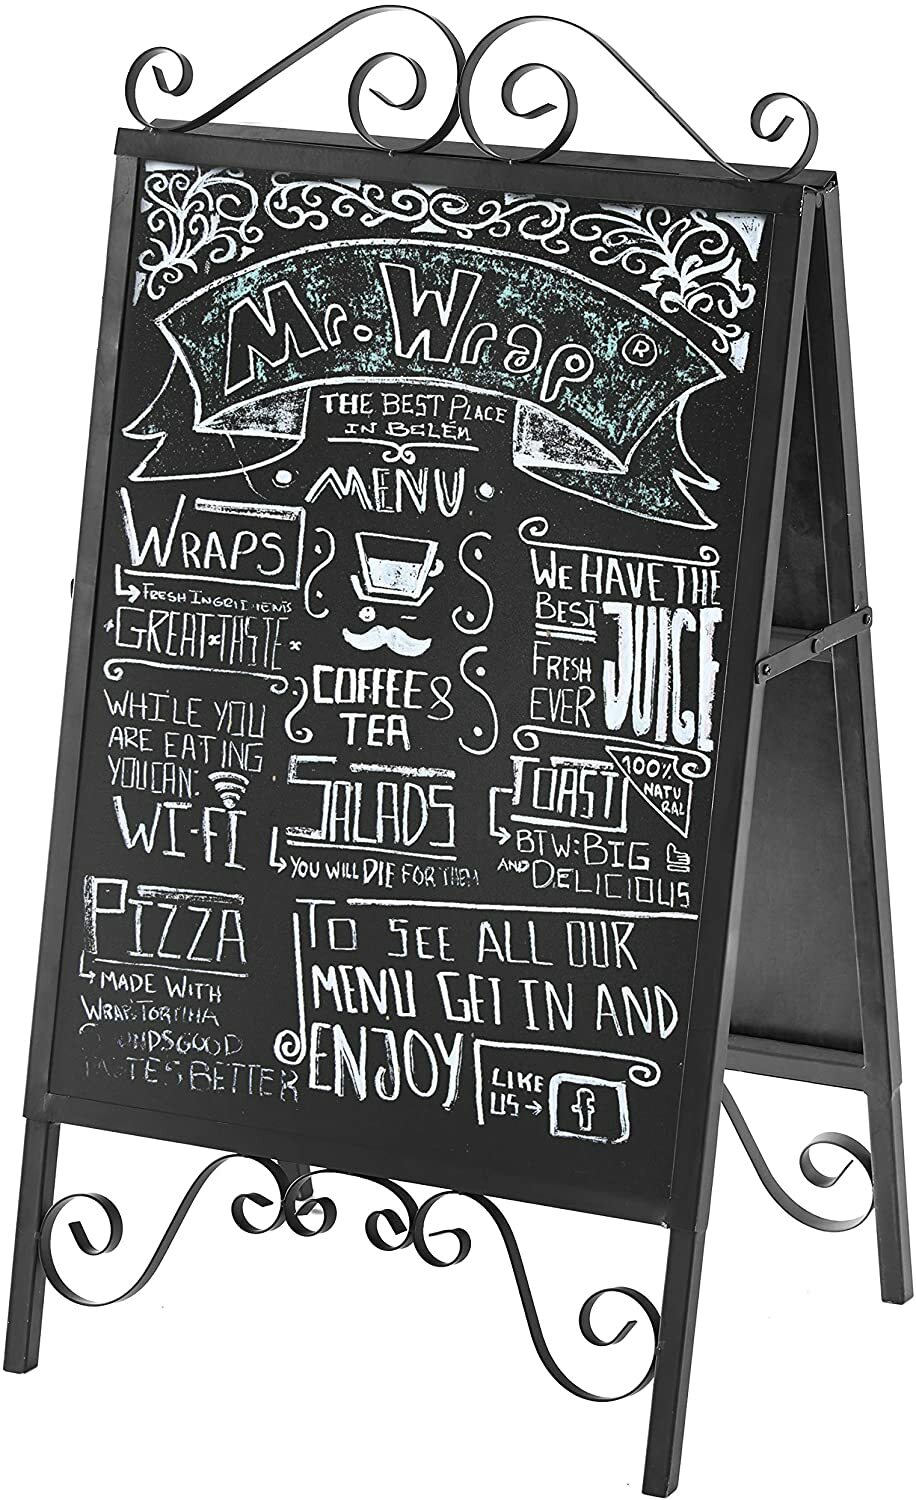 Mr. Wrap ®
THE BEST PLACE
IN BELÉM
MENU
WRAPS
FRESH INGREDIENTS
GREAT TASTE
WHILE YOU
ARE EATING
YOU CAN:
WI-FI
COFFEE &
TEA
WE HAVE THE
BEST
JUICE
FRESH
EVER
100%
NATU
RAL
SALADS
YOU WILL DIE FOR THEM
TOAST
BTW: BIG
AND DELICIOUS
PIZZA
MADE WITH
WRAP TORTILHA
SOUNDS GOOD
TASTES BETTER
TO SEE ALL OUR
MENU GET IN AND
ENJOY
LIKE
US
f